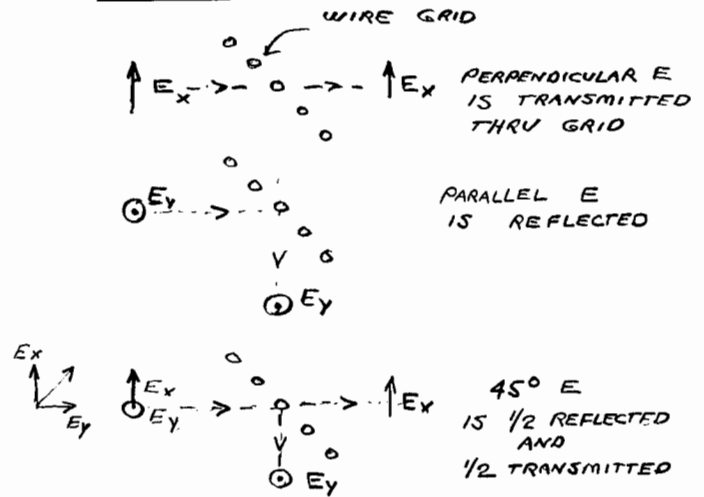 WIRE GRID
Ex
Ex
PERPENDICULAR E
IS TRANSMITTED
THRU GRID
Ey
PARALLEL E
IS REFLECTED
Ey
Ex
Ey
Ex
Ey
Ex
Ey
45° E
IS 1/2 REFLECTED
AND
1/2 TRANSMITTED